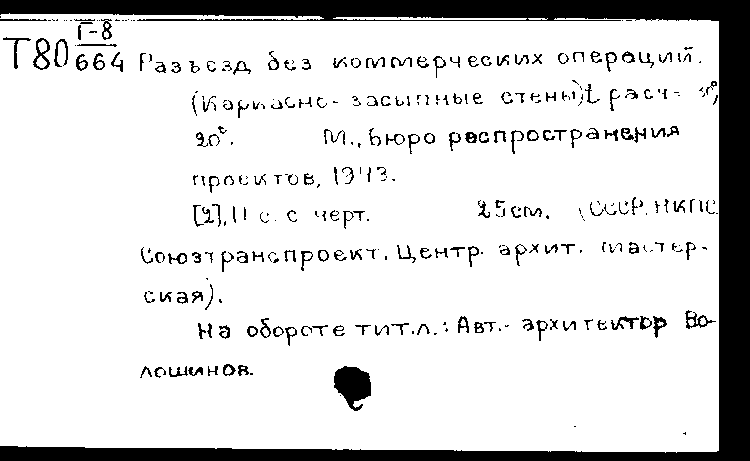 Т80 Г-8/664 Разъезд без коммерческих операций.
(Каркасно-засыпные стены) t расч-
20°. М., Бюро распространения
проектов, 1943.
[2], 11 с. с черт. 25 см. (СССР. НКПС.
Союзтранспроект. Центр. архит. мастер-
ская).
На обороте тит.л.: Авт.- архитектор Во-
лошинов.